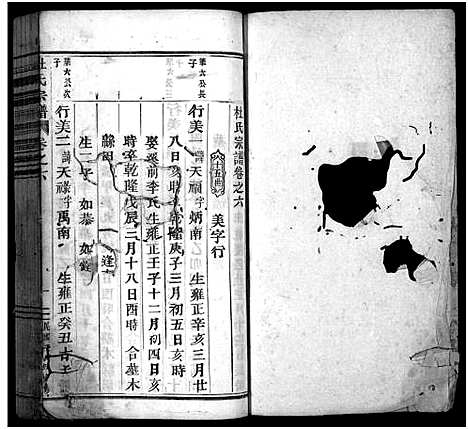 杜氏宗譜卷之六
美字行
華六公長子
行美一諱天福字炳南 生雍正辛亥三月廿
八日亥時 乾隆庚子三月初五日亥時
娶溪前李氏生雍正壬子十二月初四日亥
時卒乾隆戊辰三月十八日酉時 合墓木
生一子 如恭
華六公次子
行美二諱天祿字禹南 生雍正癸丑
杜氏宗譜 卷之六